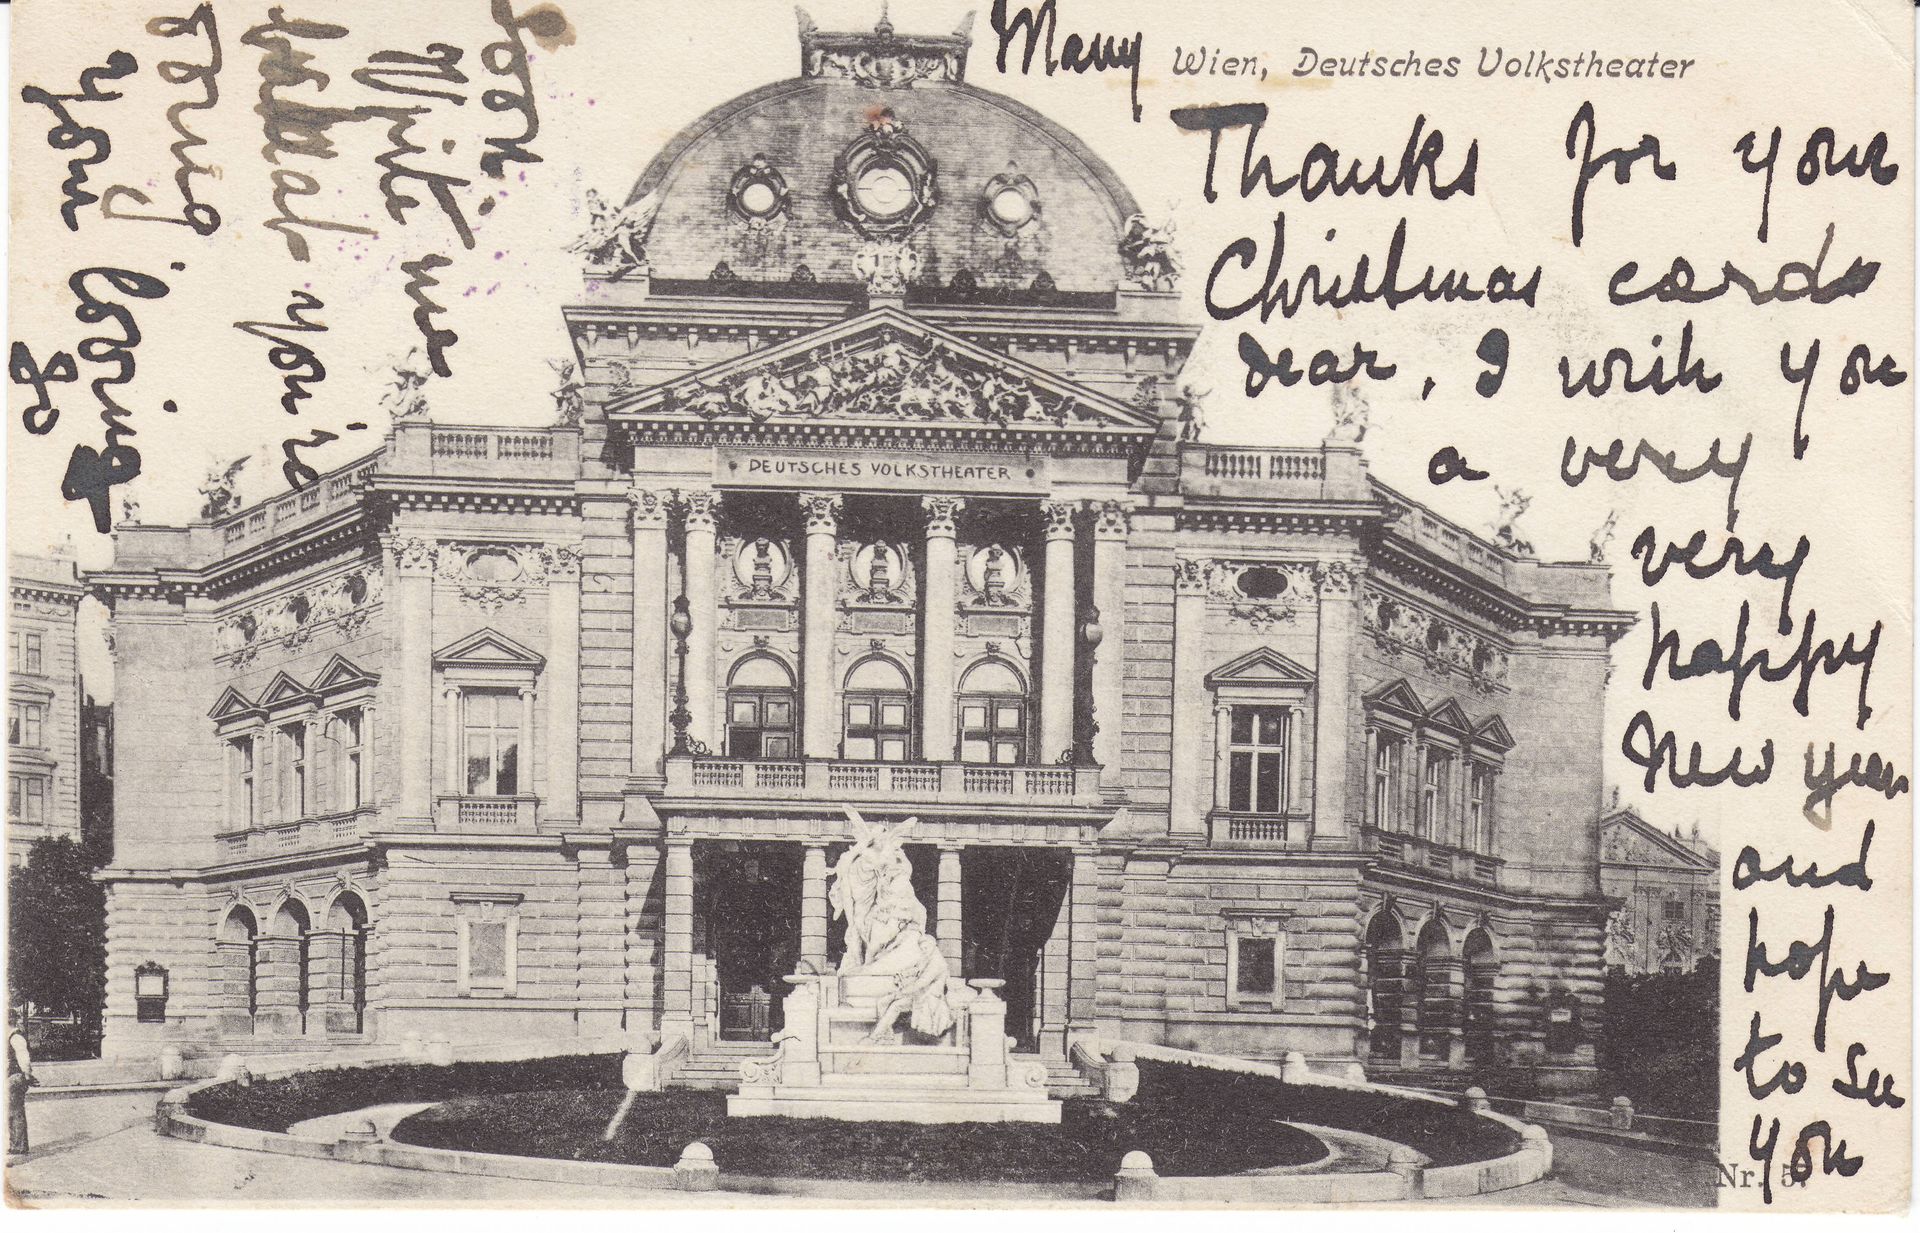 Many
Wien, Deutsches Volkstheater
Thanks for your
Christmas cards
dear, I wish you
a very
very
happy
New year
and
hope
to see
you
soon.
Write me
what you're
doing
your loving
DEUTSCHES VOLKSTHEATER
Nr. 5